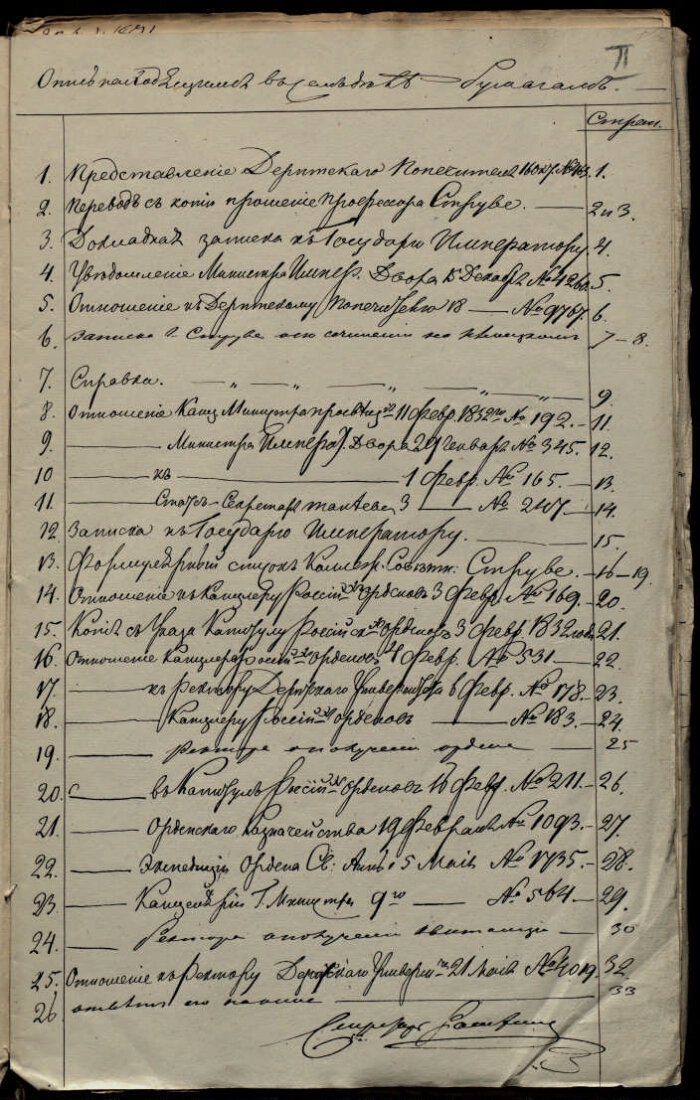 II
Опись находящимся въ семъ дѣлѣ бумагамъ.
Стран.
1. Представленіе Дерптскаго Попечителя № 1.
2. Переводъ съ копіи прошенія Профессора Струве. — 2 и 3.
3. Докладная записка къ Государю Императору. 4.
4. Увѣдомленіе Министра Импер. Двора Декабря № 5.
5. Отношеніе къ Дерптскому Попечителю 18 — № 9767. 6.
6. Записка Г. Струве его сочиненія на 7-8.
7. Справка. — „ — „ — „ — „ — 9.
8. Отношеніе Канц. Министра просв. 11 Февр. 1832 № 192. — 11.
9. — Министра Императ. Двора 29 Генваря № 345. 12.
10 — къ — 1 Февр. № 165. — 13.
11 — Статсъ-Секретаря Танѣева 3 — № 247 — 14.
12. Записка къ Государю Императору. — 15.
13. Формулярный списокъ Коллеж. Совѣтн. Струве. — 16-19.
14. Отношеніе къ Канцлеру Россійскихъ Орденовъ 3 Февр. № 169. — 20.
15. Копія съ Указа Капитулу Россійскихъ Орденовъ 3 Февр. 1832 года 21.
16. Отношеніе Канцлера Россійскихъ Орденовъ 4 Февр. № 531 — 22.
17. — къ Ректору Дерптскаго Университета 6 Февр. № 178. — 23.
18. — Канцлеру Россійскихъ Орденовъ — № 183. — 24.
19. — Ректора о полученіи ордена — 25
20. — въ Капитулъ Россійскихъ Орденовъ 16 Февр. № 211. — 26.
21. — Орденскаго Казначейства 19 Февраля № 1093. — 27.
22. — Экспедиціи Ордена Св: Анны 5 Маія № 1735. — 28.
23. — Канцеляріи Г. Министра 9го — № 564. — 29.
24. — Ректора о полученіи квитанціи — 30
25. Отношеніе къ Ректору Дерптскаго Универси-та 21 Маія № 32.
26 отвѣтъ его — 33
Секретарь